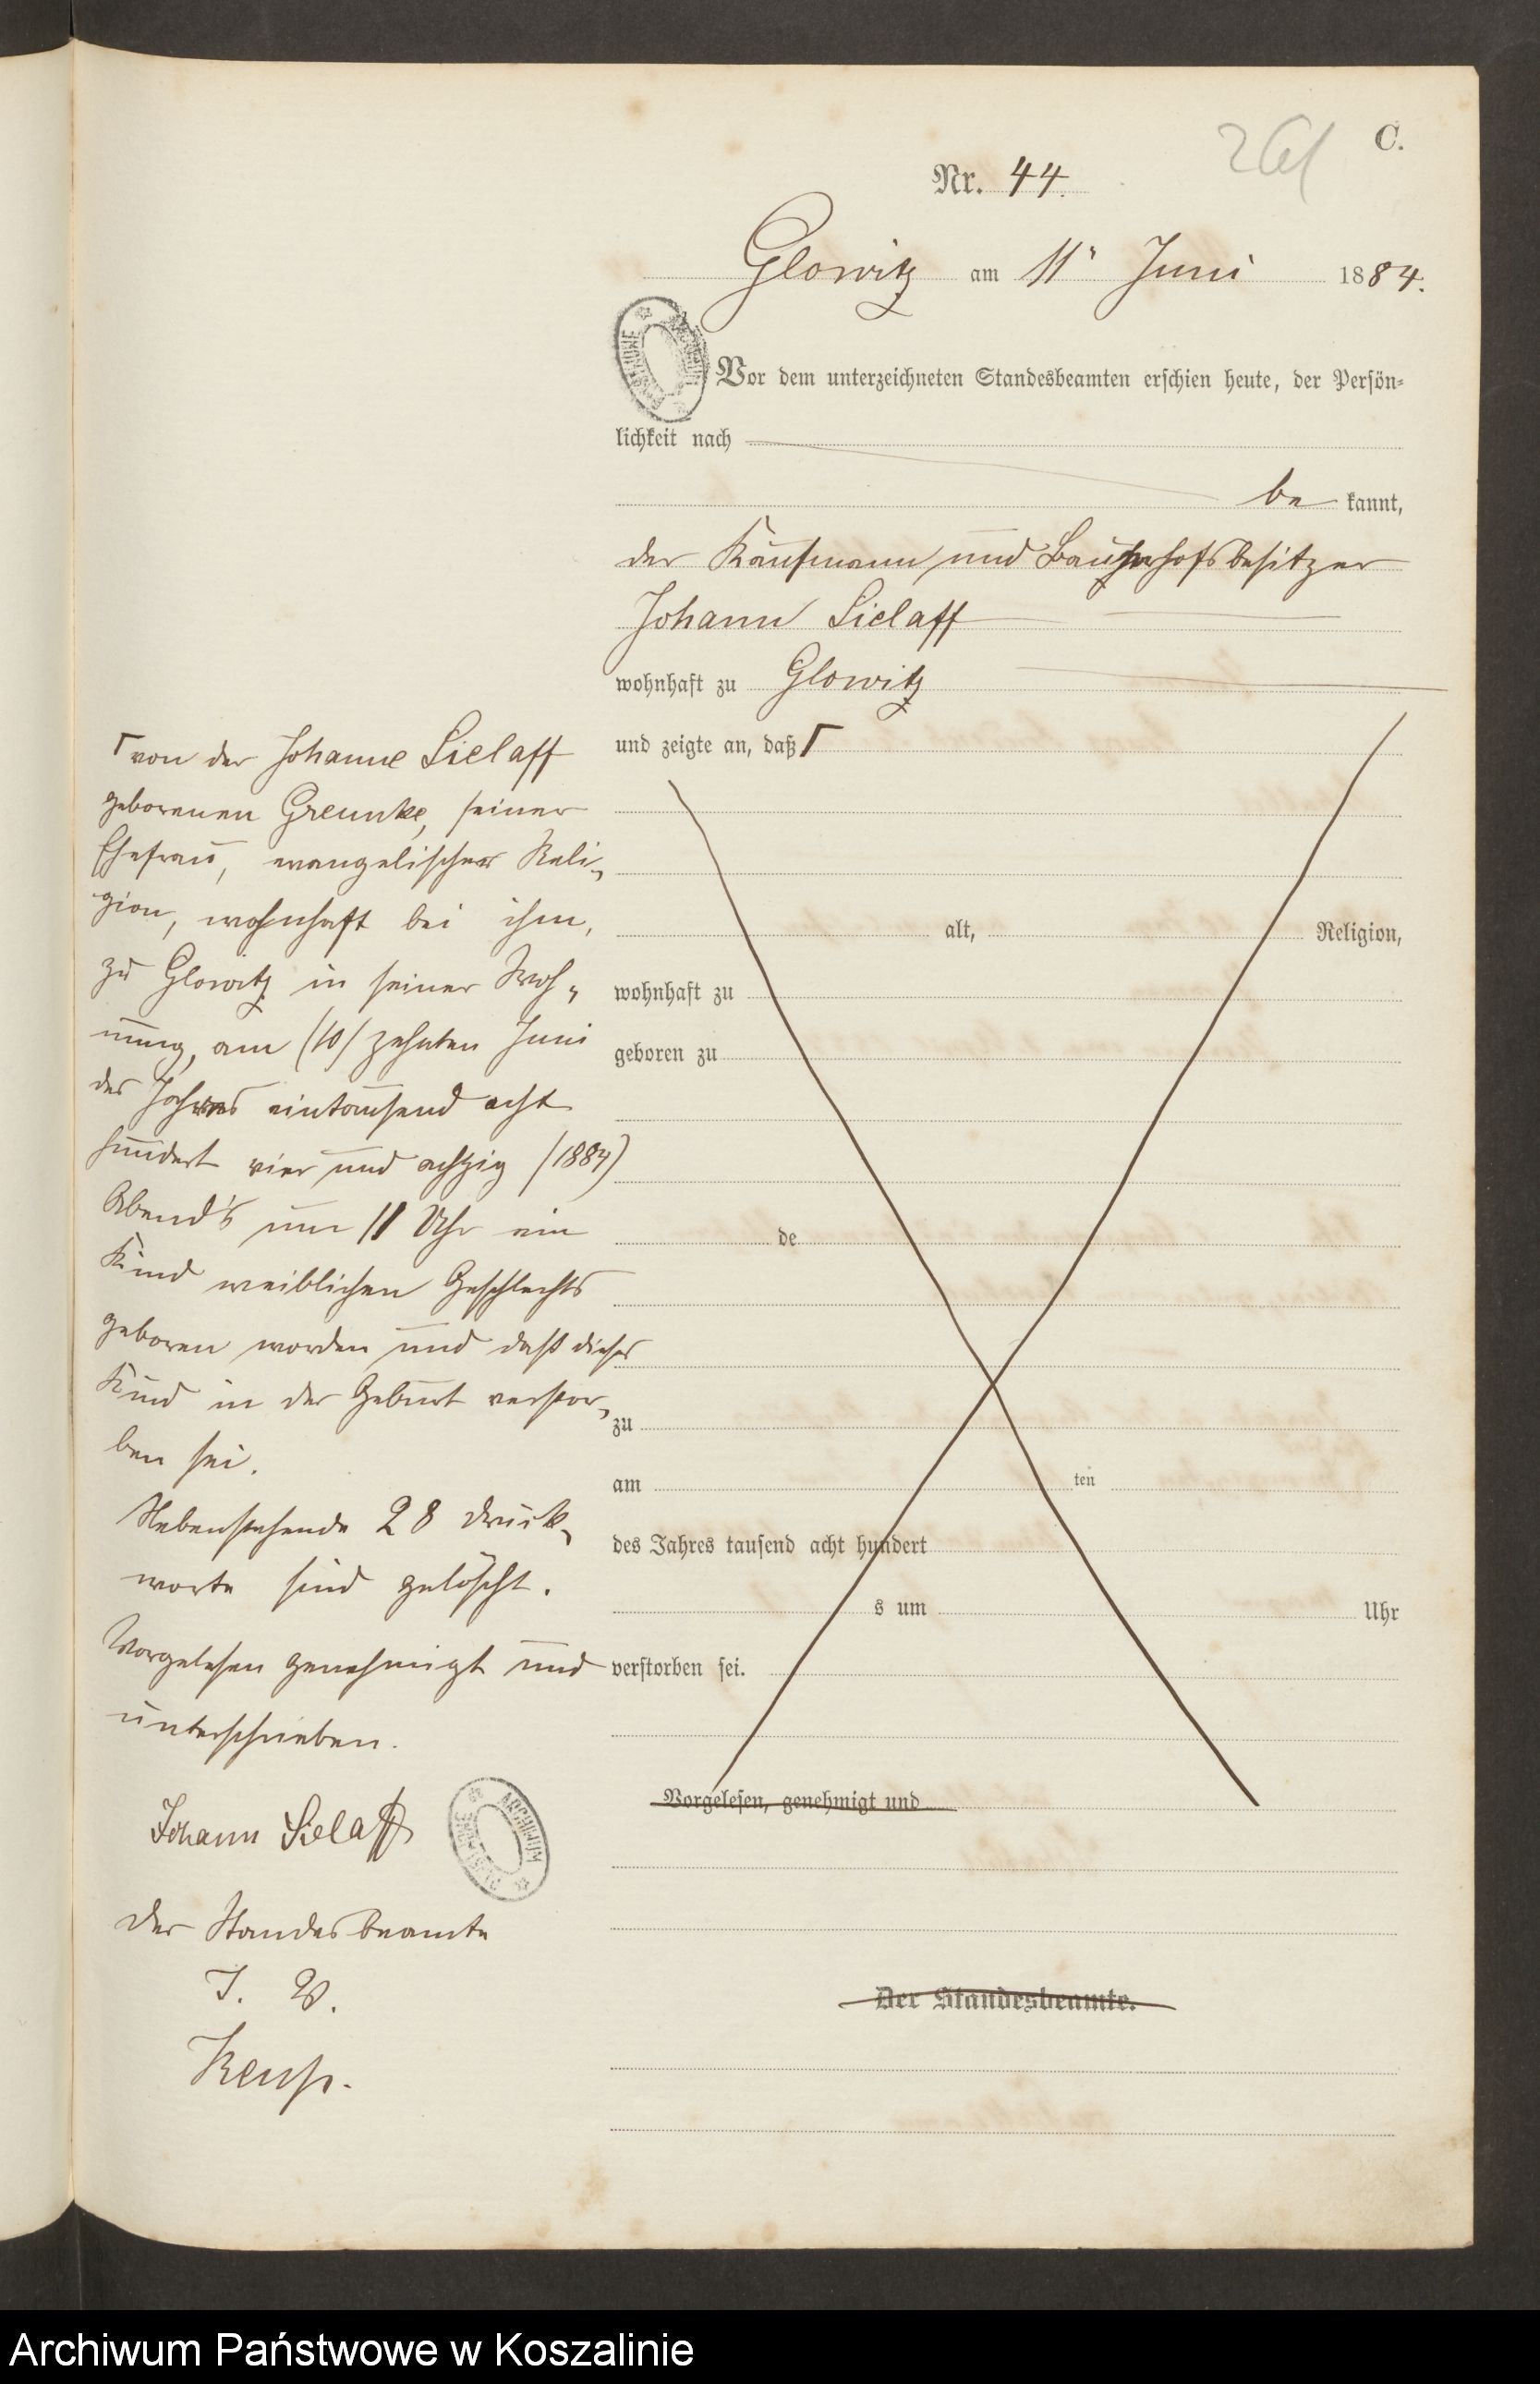 261
C.
Nr. 44.
Glowitz am 11" Juni 1884.
Vor dem unterzeichneten Standesbeamten erschien heute, der Persön-
lichkeit nach
be kannt,
der Kaufmann und Bauerhofsbesitzer
Johann Sielaff
wohnhaft zu Glowitz
und zeigte an, daß Γ
alt, Religion,
wohnhaft zu
geboren zu
de
zu
am ten
des Jahres tausend acht hundert
s um Uhr
verstorben sei.
Vorgelesen, genehmigt und
Der Standesbeamte.
Γ von der Johanne Sielaff
geborenen Greunke, seiner
Ehefrau, evangelischer Reli-
gion, wohnhaft bei ihm,
zu Glowitz in seiner Woh-
nung, am (10) zehnten Juni
des Jahres eintausend acht
hundert vier und achtzig (1884)
Abend's um 11 Uhr ein
Kind weiblichen Geschlechts
geboren worden und daß dieses
Kind in der Geburt verstor-
ben sei.
Nebenstehende 28 Druck-
worte sind gelöscht.
Vorgelesen genehmigt und
unterschrieben.
Johann Sielaff
ARCHIWUM
Der Standesbeamte
I. V.
Archiwum Państwowe w Koszalinie